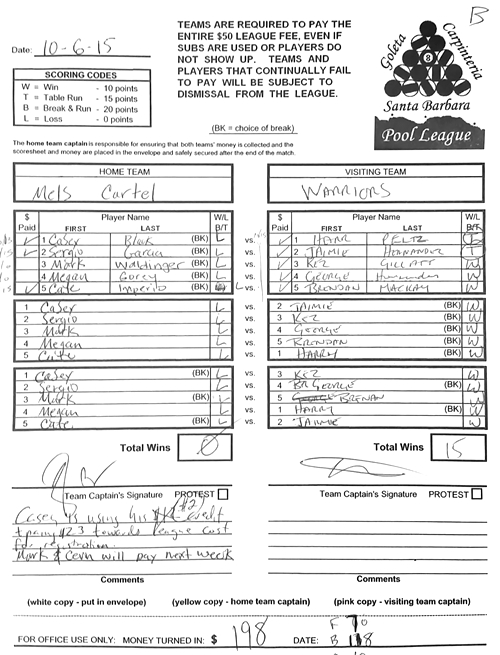 B
Date: 10-6-15
TEAMS ARE REQUIRED TO PAY THE
ENTIRE $50 LEAGUE FEE, EVEN IF
SUBS ARE USED OR PLAYERS DO
NOT SHOW UP. TEAMS AND
PLAYERS THAT CONTINUALLY FAIL
TO PAY WILL BE SUBJECT TO
DISMISSAL FROM THE LEAGUE.
SCORING CODES
W = Win - 10 points
T = Table Run - 15 points
B = Break & Run - 20 points
L = Loss - 0 points
Goleta Carpinteria
8
Santa Barbara
Pool League
(BK = choice of break)
The home team captain is responsible for ensuring that both teams' money is collected and the
scoresheet and money are placed in the envelope and safely secured after the end of the match.
HOME TEAM
Mels Cartel
VISITING TEAM
WARRIORS
$ Paid Player Name FIRST LAST W/L B/T
1 Casey Blok (BK) L
2 Sergio Garcia (BK) L
3 Mark Waldinger (BK) L
4 Megan Gorey (BK) L
5 Cate Imperito (BK)
vs.
$ Paid Player Name FIRST LAST W/L B/T
1 HARRY PELTZ
2 JAIMIE HERNANDEZ
3 KEZ GILLATT W
4 GEORGE Hernandez W
5 BRENDAN MACKAY W
1 Casey L vs. 2 JAIMIE (BK) W
2 Sergio L vs. 3 KEZ (BK) W
3 Mark L vs. 4 GEORGE (BK) W
4 Megan L vs. 5 BRENDAN (BK) W
5 Cate L vs. 1 HARRY (BK) W
1 Casey (BK) L vs. 3 KEZ W
2 Sergio L vs. 4 GEORGE (BK) W
3 Mark (BK) L vs. 5 BRENAN W
4 Megan L vs. 1 HARRY (BK) W
5 Cate (BK) L vs. 2 JAIMIE W
Total Wins 0
Total Wins 15
Team Captain's Signature PROTEST
Team Captain's Signature PROTEST
Casey is using his credit
towards league cost
Mark & Cevn will pay next week
Comments
Comments
(white copy - put in envelope) (yellow copy - home team captain) (pink copy - visiting team captain)
FOR OFFICE USE ONLY: MONEY TURNED IN: $ 198 DATE:
F 70
B 118